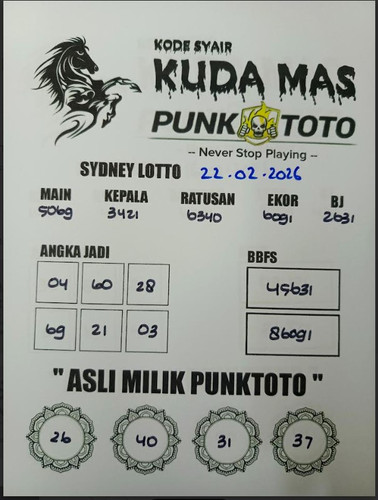 KODE SYAIR
KUDA MAS
PUNK TOTO
-- Never Stop Playing --
SYDNEY LOTTO 22-02-2026
MAIN KEPALA RATUSAN EKOR BJ
5069 3421 6340 6091 2631
ANGKA JADI BBFS
04 60 28 45631
69 21 03 86091
" ASLI MILIK PUNKTOTO "
26 40 31 37